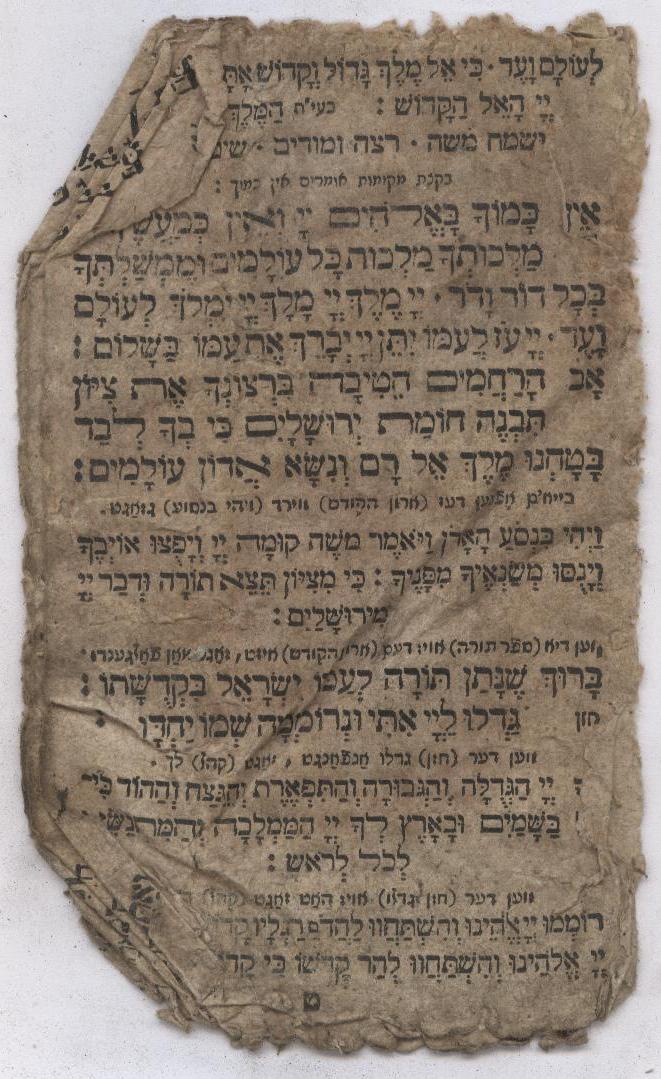 לְעוֹלָם וָעֶד · כִּי אֵל מֶלֶךְ גָּדוֹל וְקָדוֹשׁ אָתָּ
יְיָ הָאֵל הַקָּדוֹשׁ : בעי״ת הַמֶּלֶךְ
ישמח משה · רצה ומודים · שים
בקצת מקומות אומרים אין כמוך :
אֵין כָּמוֹךָ בָּאֱלֹהִים יְיָ וְאֵין כְּמַעֲשֶׂיךָ
מַלְכוּתְךָ מַלְכוּת כָּל עוֹלָמִים וּמֶמְשַׁלְתְּךָ
בְּכָל דּוֹר וָדֹר · יְיָ מֶלֶךְ יְיָ מָלָךְ יְיָ יִמְלֹךְ לְעוֹלָם
וָעֶד · יְיָ עֹז לְעַמּוֹ יִתֵּן יְיָ יְבָרֵךְ אֶת עַמּוֹ בַּשָּׁלוֹם :
אָב הָרַחֲמִים הֵטִיבָה בִרְצוֹנְךָ אֶת צִיּוֹן
תִּבְנֶה חוֹמַת יְרוּשָׁלָיִם כִּי בְךָ לְבַד
בָּטָחְנוּ מֶלֶךְ אֵל רָם וְנִשָּׂא אֲדוֹן עוֹלָמִים :
בייא״ם אָפֿען דעז (ארון הקודש) ווירד (ויהי בנסוע) גזאגט.
וַיְהִי בִּנְסֹעַ הָאָרֹן וַיֹּאמֶר משֶׁה קוּמָה יְיָ וְיָפֻצוּ אוֹיְבֶיךָ
וְיָנֻסוּ מְשַׂנְאֶיךָ מִפָּנֶיךָ : כִּי מִצִּיּוֹן תֵּצֵא תוֹרָה וּדְבַר יְיָ
מִירוּשָׁלַיִם :
ווען דיא (ספר תורה) אויז דעם (ארון הקודש) איזט, זאגט מאן
בָּרוּךְ שֶׁנָּתַן תּוֹרָה לְעַמּוֹ יִשְׂרָאֵל בִּקְדֻשָּׁתוֹ :
חזן גַּדְּלוּ לַיְיָ אִתִּי וּנְרוֹמְמָה שְׁמוֹ יַחְדָּו :
ווען דער (חזן) גדלו אנפאנגט, זאגט (קהל) לך ·
יְיָ הַגְּדֻלָּה וְהַגְּבוּרָה וְהַתִּפְאֶרֶת וְהַנֵּצַח וְהַהוֹד כִּי
בַּשָּׁמַיִם וּבָאָרֶץ לְךָ יְיָ הַמַּמְלָכָה וְהַמִּתְנַשֵּׂא
לְכֹל לְרֹאשׁ :
ווען דער (חזן גדלו) אויז האט זאגט (קהל)
רוֹמְמוּ יְיָ אֱלֹהֵינוּ וְהִשְׁתַּחֲווּ לַהֲדֹם רַגְלָיו קָדוֹשׁ
יְיָ אֱלֹהֵינוּ וְהִשְׁתַּחֲווּ לְהַר קָדְשׁוֹ כִּי קָדוֹ
ט